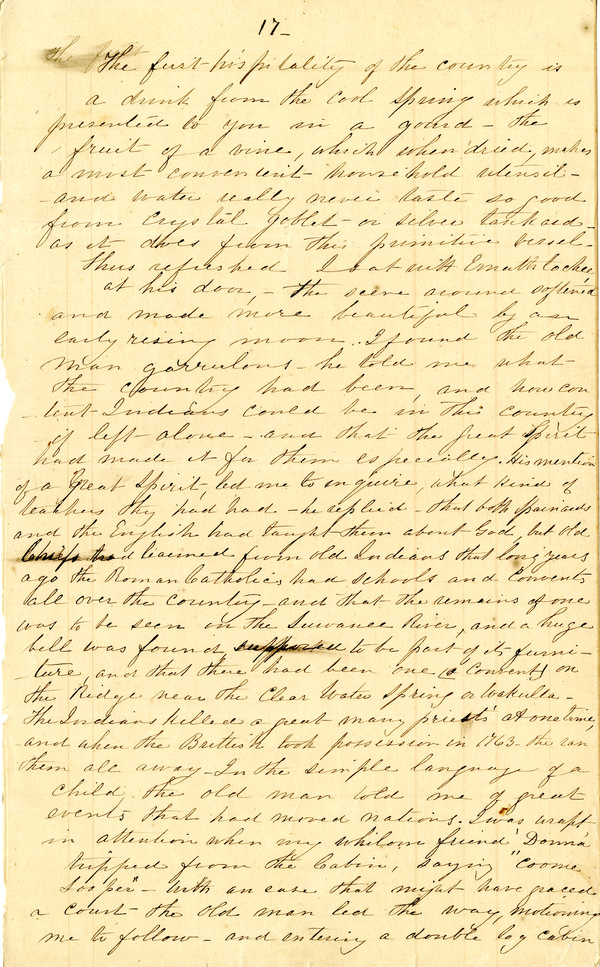 17-
The first hospitality of the country is
a drink from the cool spring which is
presented to you in a gourd - the
fruit of a vine, which when dried, makes
a most convenient household utensil -
and water really never taste so good
from crystal goblet - or silver tankard -
as it does from this primitive vessel -
thus refreshed I sat with Emathlochee,
at his door, - the scene around softened
and made more beautiful by an
early rising moon. I found the old
man garrulous - he told me what
the country had been, and how con
-tent Indians could be in this country
if left alone - and that the great Spirit
had made it for them especially. His mention
of a Great Spirit, led me to inquire, what kind of
teachers they had had - he replied - that both Spainards
and the English had taught them about God, but old
had learned from old Indians that long years
ago the Roman Catholics had schools and Convents
all over the country - and that the remains of one
was to be seen on the Suwanee River, and a huge
bell was found supposed to be part of its furni-
-ture, and that there had been one (a Convent) on
the Ridge near the Clear Water Spring or Wakulla -
the Indians killed a great many priests at one time,
and when the Brittish took possession in 1763 - the ran
them all away - In the simple language of a
child, the old man told me of great
events that had moved nations. I was wrapt
in attention when my whilom friend 'Donna'
tripped from the Cabin, saying "Coome
Sopper" - with an ease that might have graced
a court the old man led the way, motioning
me to follow - and entering a double log cabin